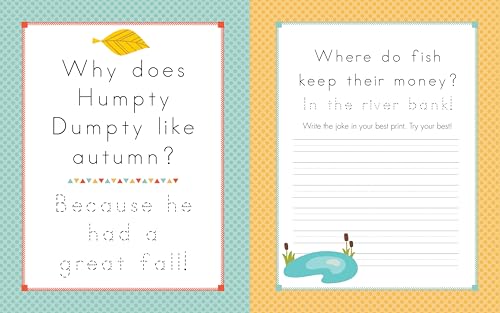 Why does
Humpty
Dumpty like
autumn?
Because he
had a
great fall!
Where do fish
keep their money?
In the river bank!
Write the joke in your best print. Try your best!